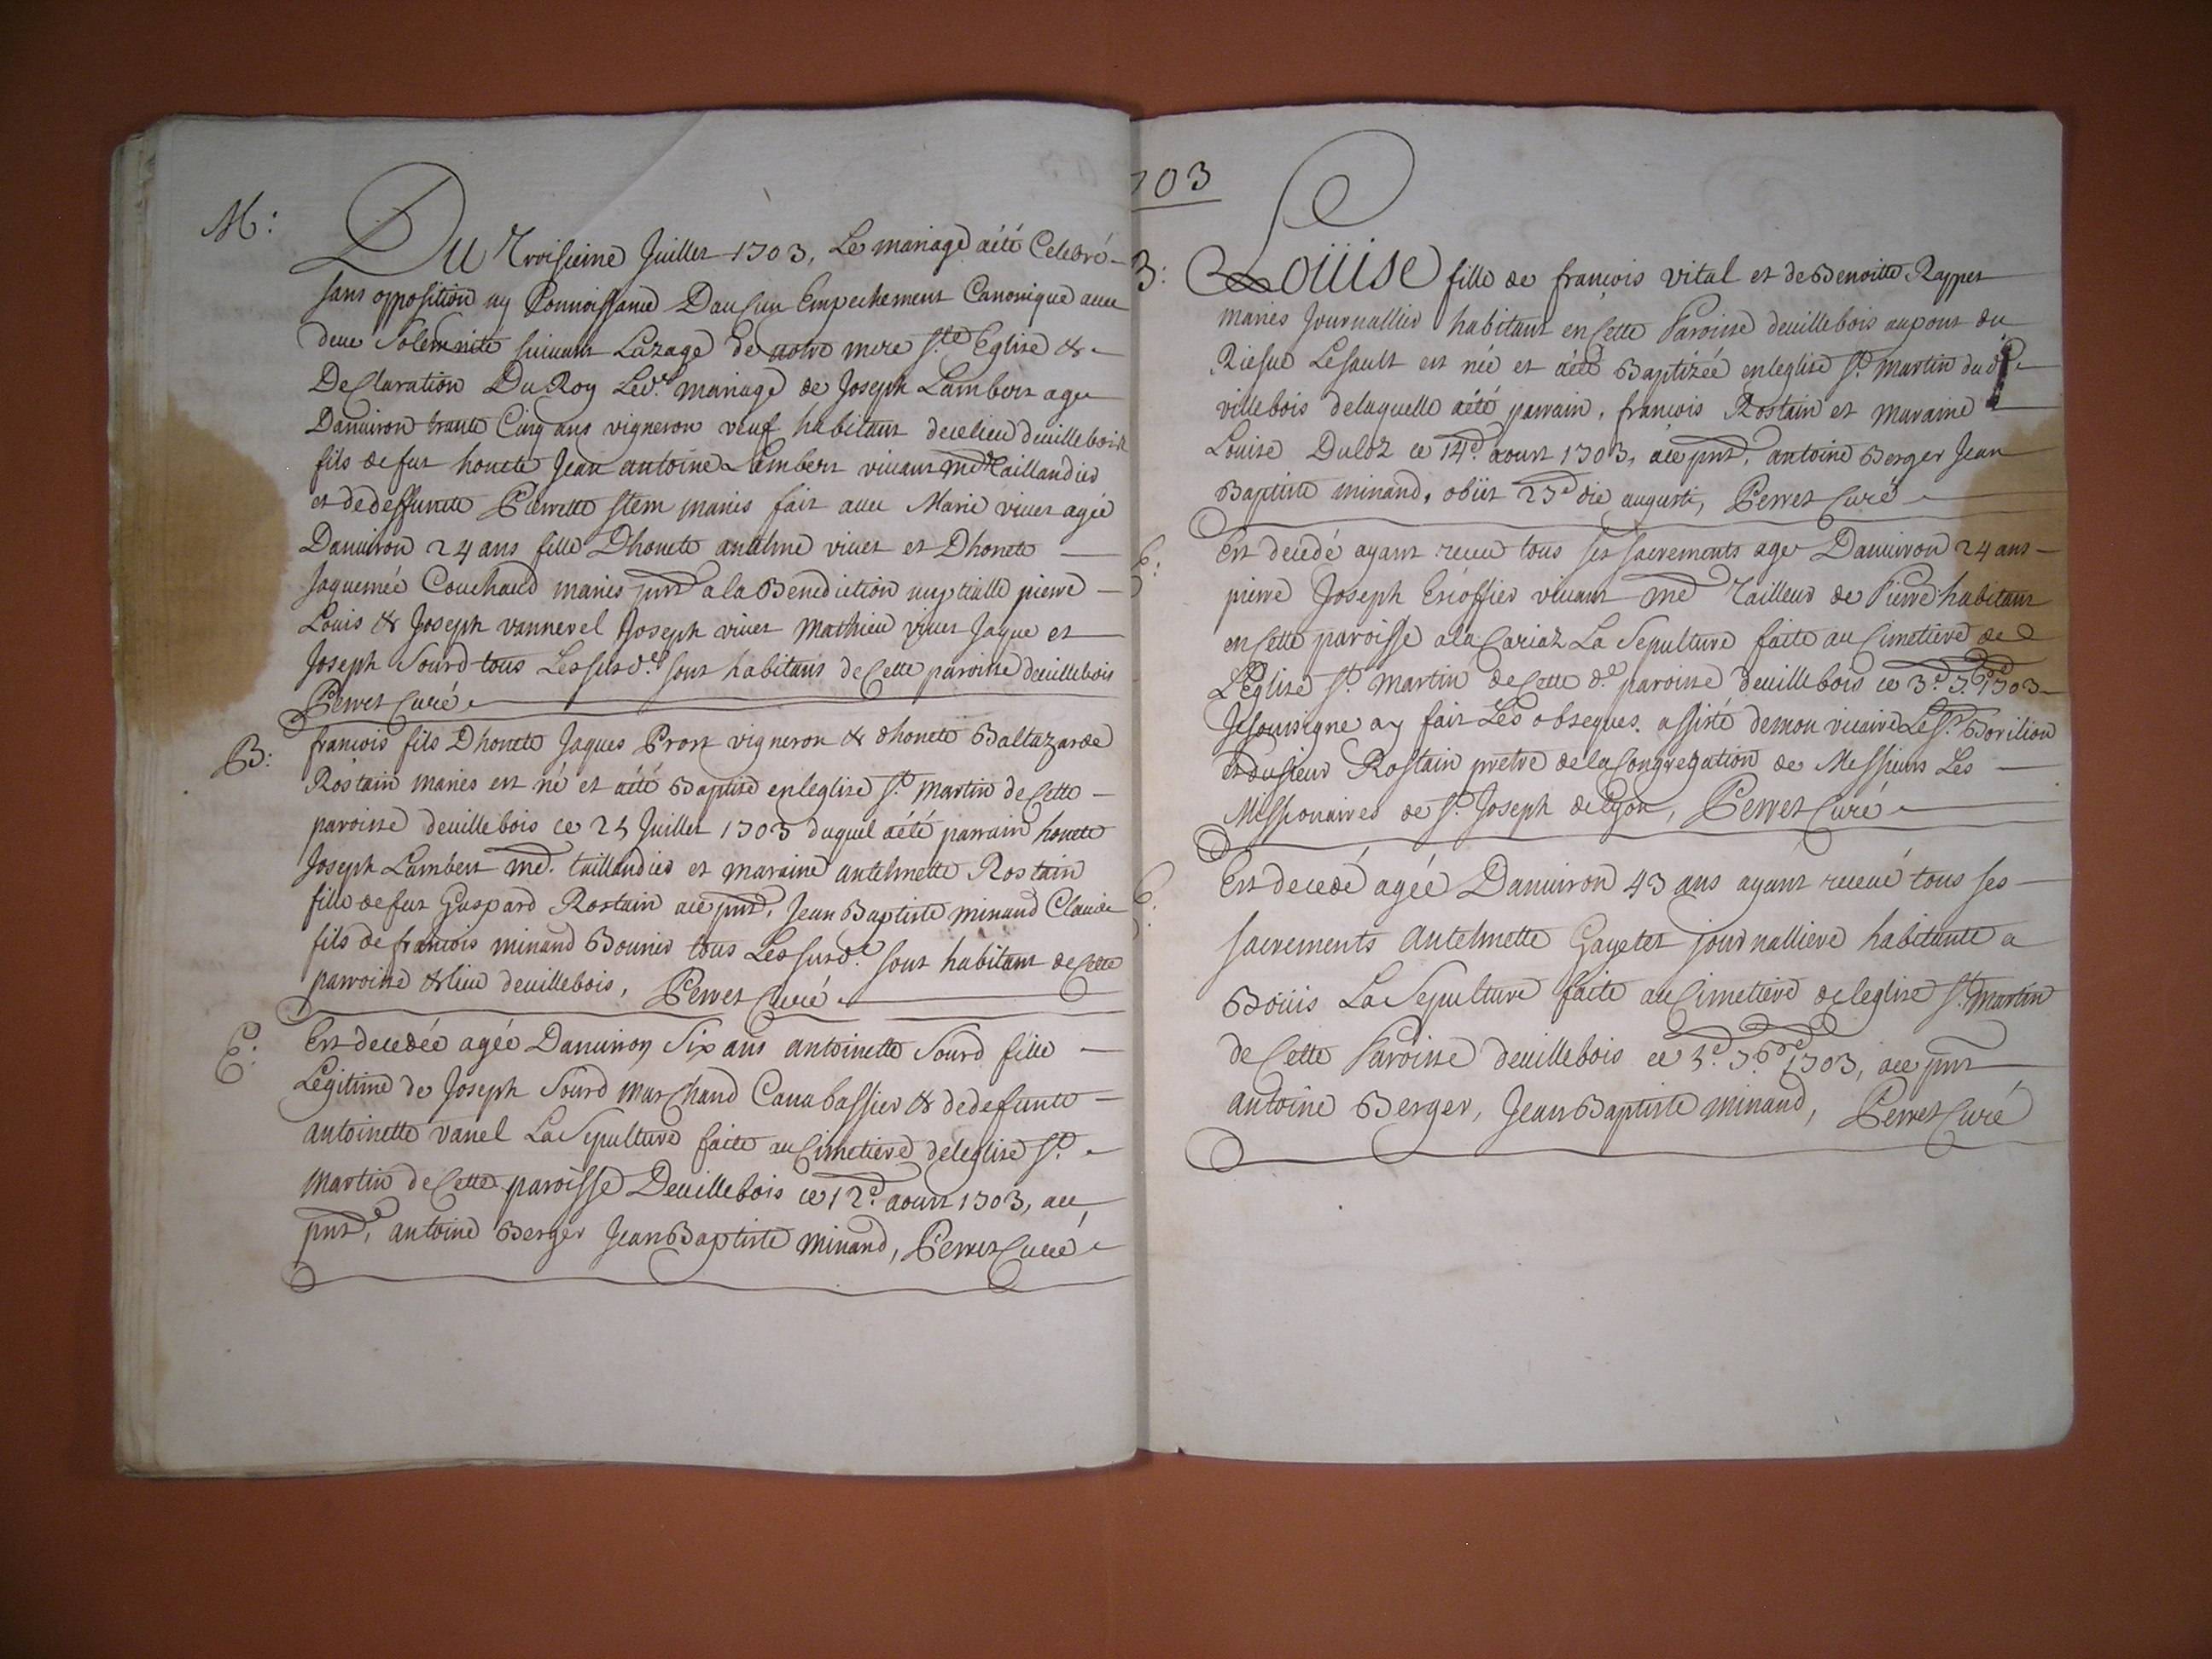 M:
Du Troisieme Juillet 1703, Le mariage aété Celebré
sans opposition ny Connoissance Daucun Empechement Canonique avec
deue Solemnite suivant Luzage de notre mere Ste Eglise &
Declaration Du Roy Led. mariage de Joseph Lambert age
Danviron trante Cinq ans vigneron veuf habitant decelieu devillebois
fils defut honete Jean antoine Lambert vivant md Taillandier
et dedeffuncte Pierrette stem maries fait avec Marie vivet agée
Danviron 24 ans fille Dhonete antelme vivet et Dhonete
Jaquemée Couchaud maries pnt ala Benediction nuptialle pierre
Louis & Joseph vannevel Joseph vivet Mathieu vivet Jaque et
Joseph Sourd tous Lessusd. sont habitans deCette paroisse devillebois
Perret Curé
B:
francois fils Dhonete Jaques Pront vigneron & dhonete Baltazarde
Rostain maries est né et aété Baptisé enleglise St. Martin deCette
paroisse devillebois ce 25 Juillet 1703 duquel aété parrain honete
Joseph Lambert md. taillandier et maraine antelmette Rostain
fille defut Gaspard Rostain ace pnt, Jean Baptiste minand Claude
fils de francois minand Bounier tous Lessusd. sont habitant deCette
parroisse & lieu devillebois, Perret Curé
E:
Est decedée agée Danviron Six ans antoinette Sourd fille
Legitime de Joseph Sourd marChand Canabassier & dedefunte
antoinette vanel La Sepulture faite au Cimetiere deleglise St.
Martin deCette paroisse Devillebois ce 12e. aoust 1703, ace
pnt, antoine Berger JeanBaptiste minand, Perret Curé
703
B:
Loüise fille de francois vital et de Benoitte Rappet
maries Journallier habitant enCette Paroisse devillebois aupont du
Riesue Lesault est née et aété Baptizée enleglise St. Martin dud.
villebois delaquelle aété parrain, francois Rostain et maraine
Louise Duloz ce 14e. aoust 1703, ace pnt, antoine Berger Jean
Baptiste minand, obiit 23e die augusti, Perret Curé
E:
Est decedé ayant receu tous ses sacrements age Danviron 24 ans
pierre Joseph Escoffier vivant md Tailleur de Pierre habitant
enCette paroisse ala Cariaz La Sepulture faite au Cimetiere de
L'Eglise St. Martin deCette de. paroisse devillebois ce 3e. 7bre 1703
Jesousigne ay fait Les obseques. assisté demon vicaire Le Sr. Borilion
et dusieur Rostain pretre delaCongregation de Messieurs Les
Missionaires de St. Joseph deLyon, Perret Curé
E:
Est decedé agée Danviron 43 ans ayant receue tous ses
sacrements antelmette Gayetet journalliere habitante a
Boüis La Sepulture faite au Cimetiere deleglise St. Martin
deCette Paroisse devillebois ce 5e. 7bre 1703, ace pnt
antoine Berger, JeanBaptiste minand, Perret Curé